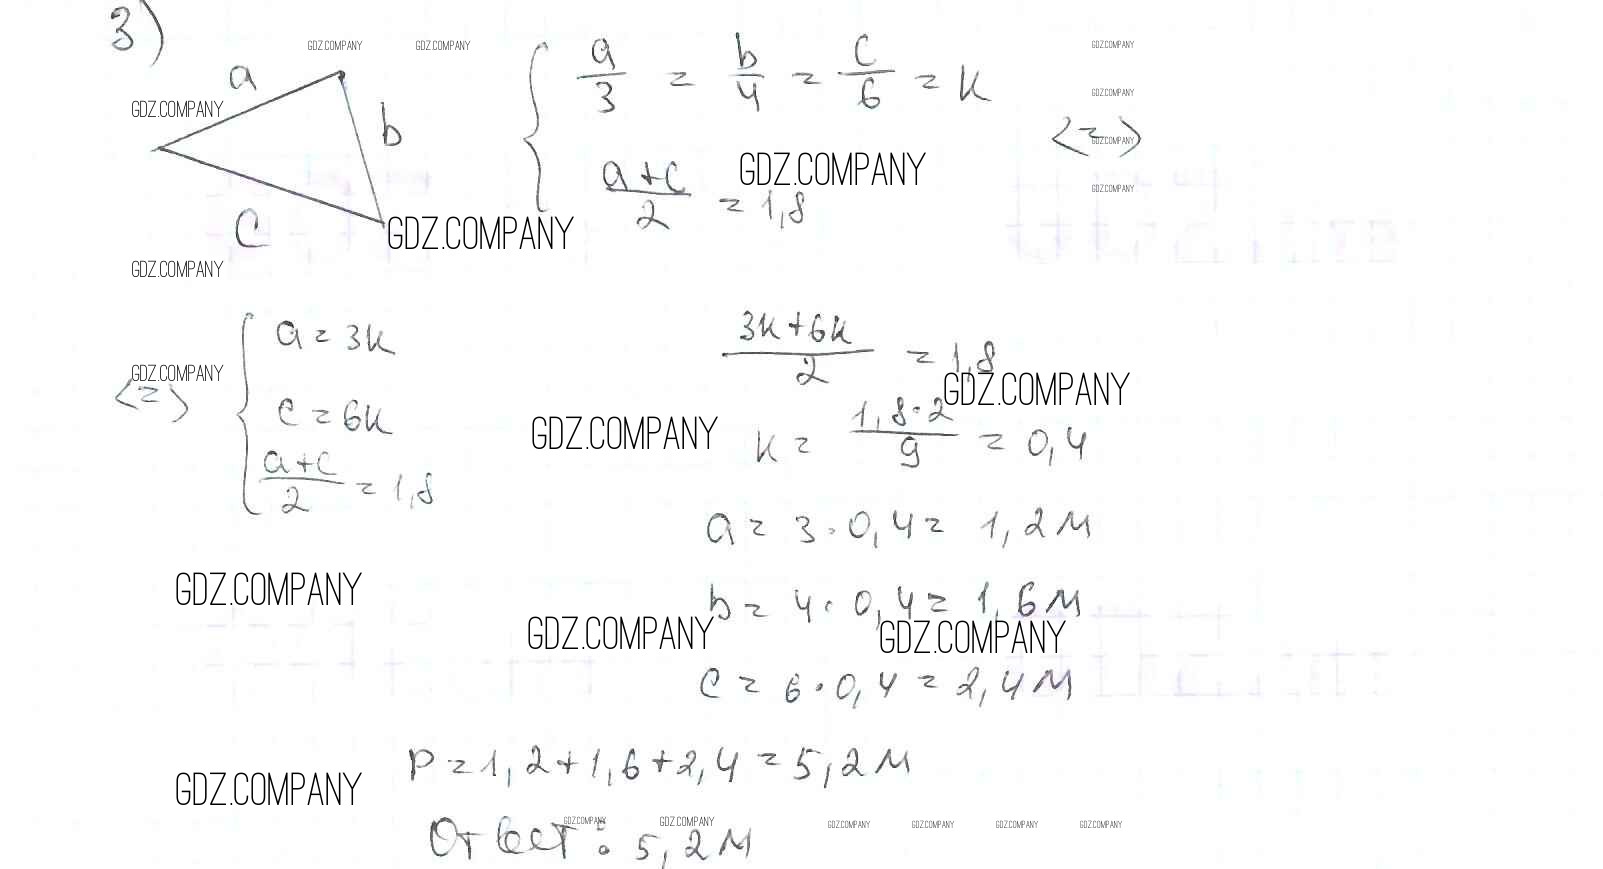 3)
GDZ.COMPANY GDZ.COMPANY GDZ.COMPANY
a
a/3 = b/4 = c/6 = k
GDZ.COMPANY
GDZ.COMPANY
b
<=> GDZ.COMPANY
GDZ.COMPANY
GDZ.COMPANY
(a+c)/2 = 1,8
c
GDZ.COMPANY
GDZ.COMPANY
a = 3k
(3k+6k)/2 = 1,8
GDZ.COMPANY
<=>
GDZ.COMPANY
c = 6k
GDZ.COMPANY
k = (1,8·2)/9 = 0,4
(a+c)/2 = 1,8
a = 3·0,4 = 1,2м
GDZ.COMPANY
b = 4·0,4 = 1,6м
GDZ.COMPANY GDZ.COMPANY
c = 6·0,4 = 2,4м
P = 1,2+1,6+2,4 = 5,2м
GDZ.COMPANY
GDZ.COMPANY GDZ.COMPANY GDZ.COMPANY GDZ.COMPANY GDZ.COMPANY GDZ.COMPANY
Ответ: 5,2м